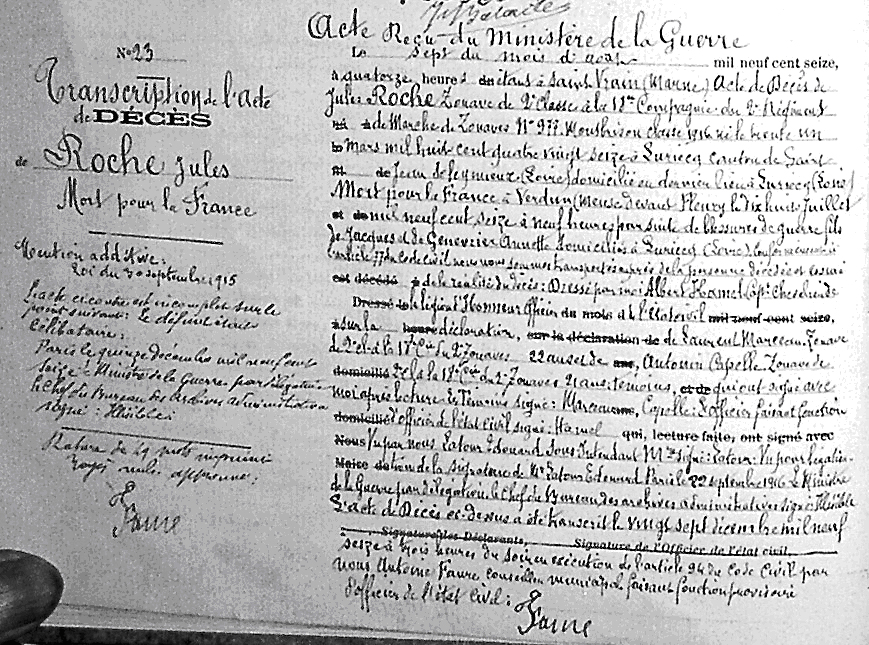 Nº 23
Transcription de l'acte
de DÉCÈS
de Roche Jules
Mort pour la France
Mention additive:
Loi du 30 septembre 1915
L'acte ci contre est incomplet sur le
point suivant: Le défunt était
célibataire:
Paris le quinze décembre mil neuf cent
seize - Ministre de la Guerre par délégation
le Chef du Bureau des Archives administratives
signé: Illisible
Rature de 29 mots imprimés
rayés nuls approuvé:
Faure
Acte Reçu du Ministère de la Guerre
Le sept du mois d'août mil neuf cent seize,
à quatorze heures étant à Saint Vrain (Marne) Acte de Décès de
Jules Roche Zouave de 2e Classe à la 18e Compagnie du 2e Régiment
de Marche de Zouaves Nº 977 Montbrison classe 1916 né le trente un
Mars mil huit cent quatre vingt seize à Luriecq canton de Saint
Jean de Soleymieux (Loire) domicilié en dernier lieu à Luriecq (Loire)
Mort pour la France à Verdun (Meuse) devant Fleury le dix huit Juillet
mil neuf cent seize à neuf heures par suite de blessures de guerre fils
de Jacques et de Genevrier Annette domiciliés à Luriecq (Loire), Conformément à
l'article 77 du Code civil nous nous sommes transporté auprès de la personne décédée et assuré
est décédé de la réalité du décès: Dressé par moi Albert Hamel Capne Chevalier de
Dressé le la légion d'Honneur Officier du mois de l'Etat civil mil neuf cent seize,
sur la heure déclaration, sur la déclaration de de Laurent Marceau, Zouave
de 2e cl à la 18e Cie du 2e Zouaves 22 ans et de ans, Antonin Capelle Zouave de
domicilié 2e cl à la 18e Cie du 2e Zouaves 21 ans témoins, et de qui ont signé avec
moi après lecture Les Témoins signé: Marceau, Capelle: L'officier faisant fonction
domicilié d'officier de l'état civil signé: Hamel qui, lecture faite, ont signé avec
Nous Vu par nous Latour Edouard Sous Intendant Mre signé: Latour: Vu pour légalisa-
Maire tion de la signature de Mr Latour Edouard Paris le 22 septembre 1916 Le Ministre
de la Guerre par délégation le Chef du Bureau des archives administratives signé: Illisible
L'acte de Décès ci-dessus a été transcrit le vingt sept décembre mil neuf
Signature des Déclarants, Signature de l'Officier de l'état civil,
seize à trois heures du soir en exécution de l'article 94 du Code Civil par
nous Antoine Faure conseiller municipal faisant fonction provisoire
d'officier de l'état Civil:
Faure